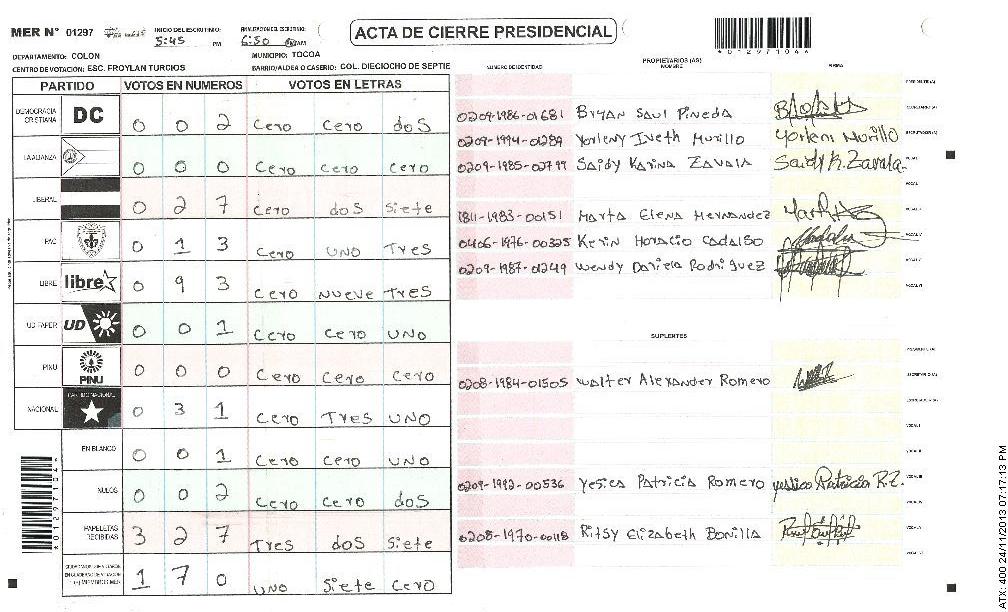 MER N° 01297
INICIO DEL ESCRUTINIO: 5:45 PM
FINALIZACION DEL ESCRUTINIO: 6:50 AM
ACTA DE CIERRE PRESIDENCIAL
*01297104*
DEPARTAMENTO: COLON
MUNICIPIO: TOCOA
CENTRO DE VOTACION: ESC. FROYLAN TURCIOS
BARRIO/ALDEA O CASERIO: COL. DIECIOCHO DE SEPTIE
PARTIDO VOTOS EN NUMEROS VOTOS EN LETRAS
DEMOCRACIA CRISTIANA DC 0 0 2 Cero Cero dos
LA ALIANZA 0 0 0 Cero Cero Cero
LIBERAL 0 2 7 Cero dos Siete
PAC 0 1 3 Cero UNO Tres
LIBRE libre 0 9 3 Cero Nueve Tres
UD FAPER UD 0 0 1 Cero Cero UNO
PINU PINU 0 0 0 Cero Cero Cero
NACIONAL PARTIDO NACIONAL 0 3 1 Cero Tres UNO
EN BLANCO 0 0 1 Cero Cero UNO
NULOS 0 0 2 Cero Cero dos
PAPELETAS RECIBIDAS 3 2 7 Tres dos Siete
1 7 0 UNO Siete Cero
NUMERO DE IDENTIDAD PROPIETARIOS (AS) NOMBRE FIRMA
PRESIDENTE(A)
0209-1986-01681 Bryan Saul Pineda SECRETARIO(A)
0209-1994-01289 Yorleny Iveth Murillo Yorleni Murillo ESCRUTADOR(A)
0209-1985-02799 Saidy Karina Zavala Saidy K. Zavala VOCAL I
VOCAL II
1811-1983-00151 Marta Elena Hernandez VOCAL III
0406-1976-00325 Kevin Horacio Cadalso VOCAL IV
0209-1987-01249 Wendy Daniela Rodriguez VOCAL V
VOCAL VI
SUPLENTES
PRESIDENTE(A)
0208-1984-01505 Walter Alexander Romero SECRETARIO(A)
ESCRUTADOR(A)
VOCAL I
VOCAL II
0209-1992-00536 Yesica Patricia Romero Yessica Patricia R.Z. VOCAL III
VOCAL IV
0208-1970-00118 Ritsy Elizabeth Bonilla VOCAL V
VOCAL VI
*01297104*
ATX: 400 24/11/2013 07:17:13 PM